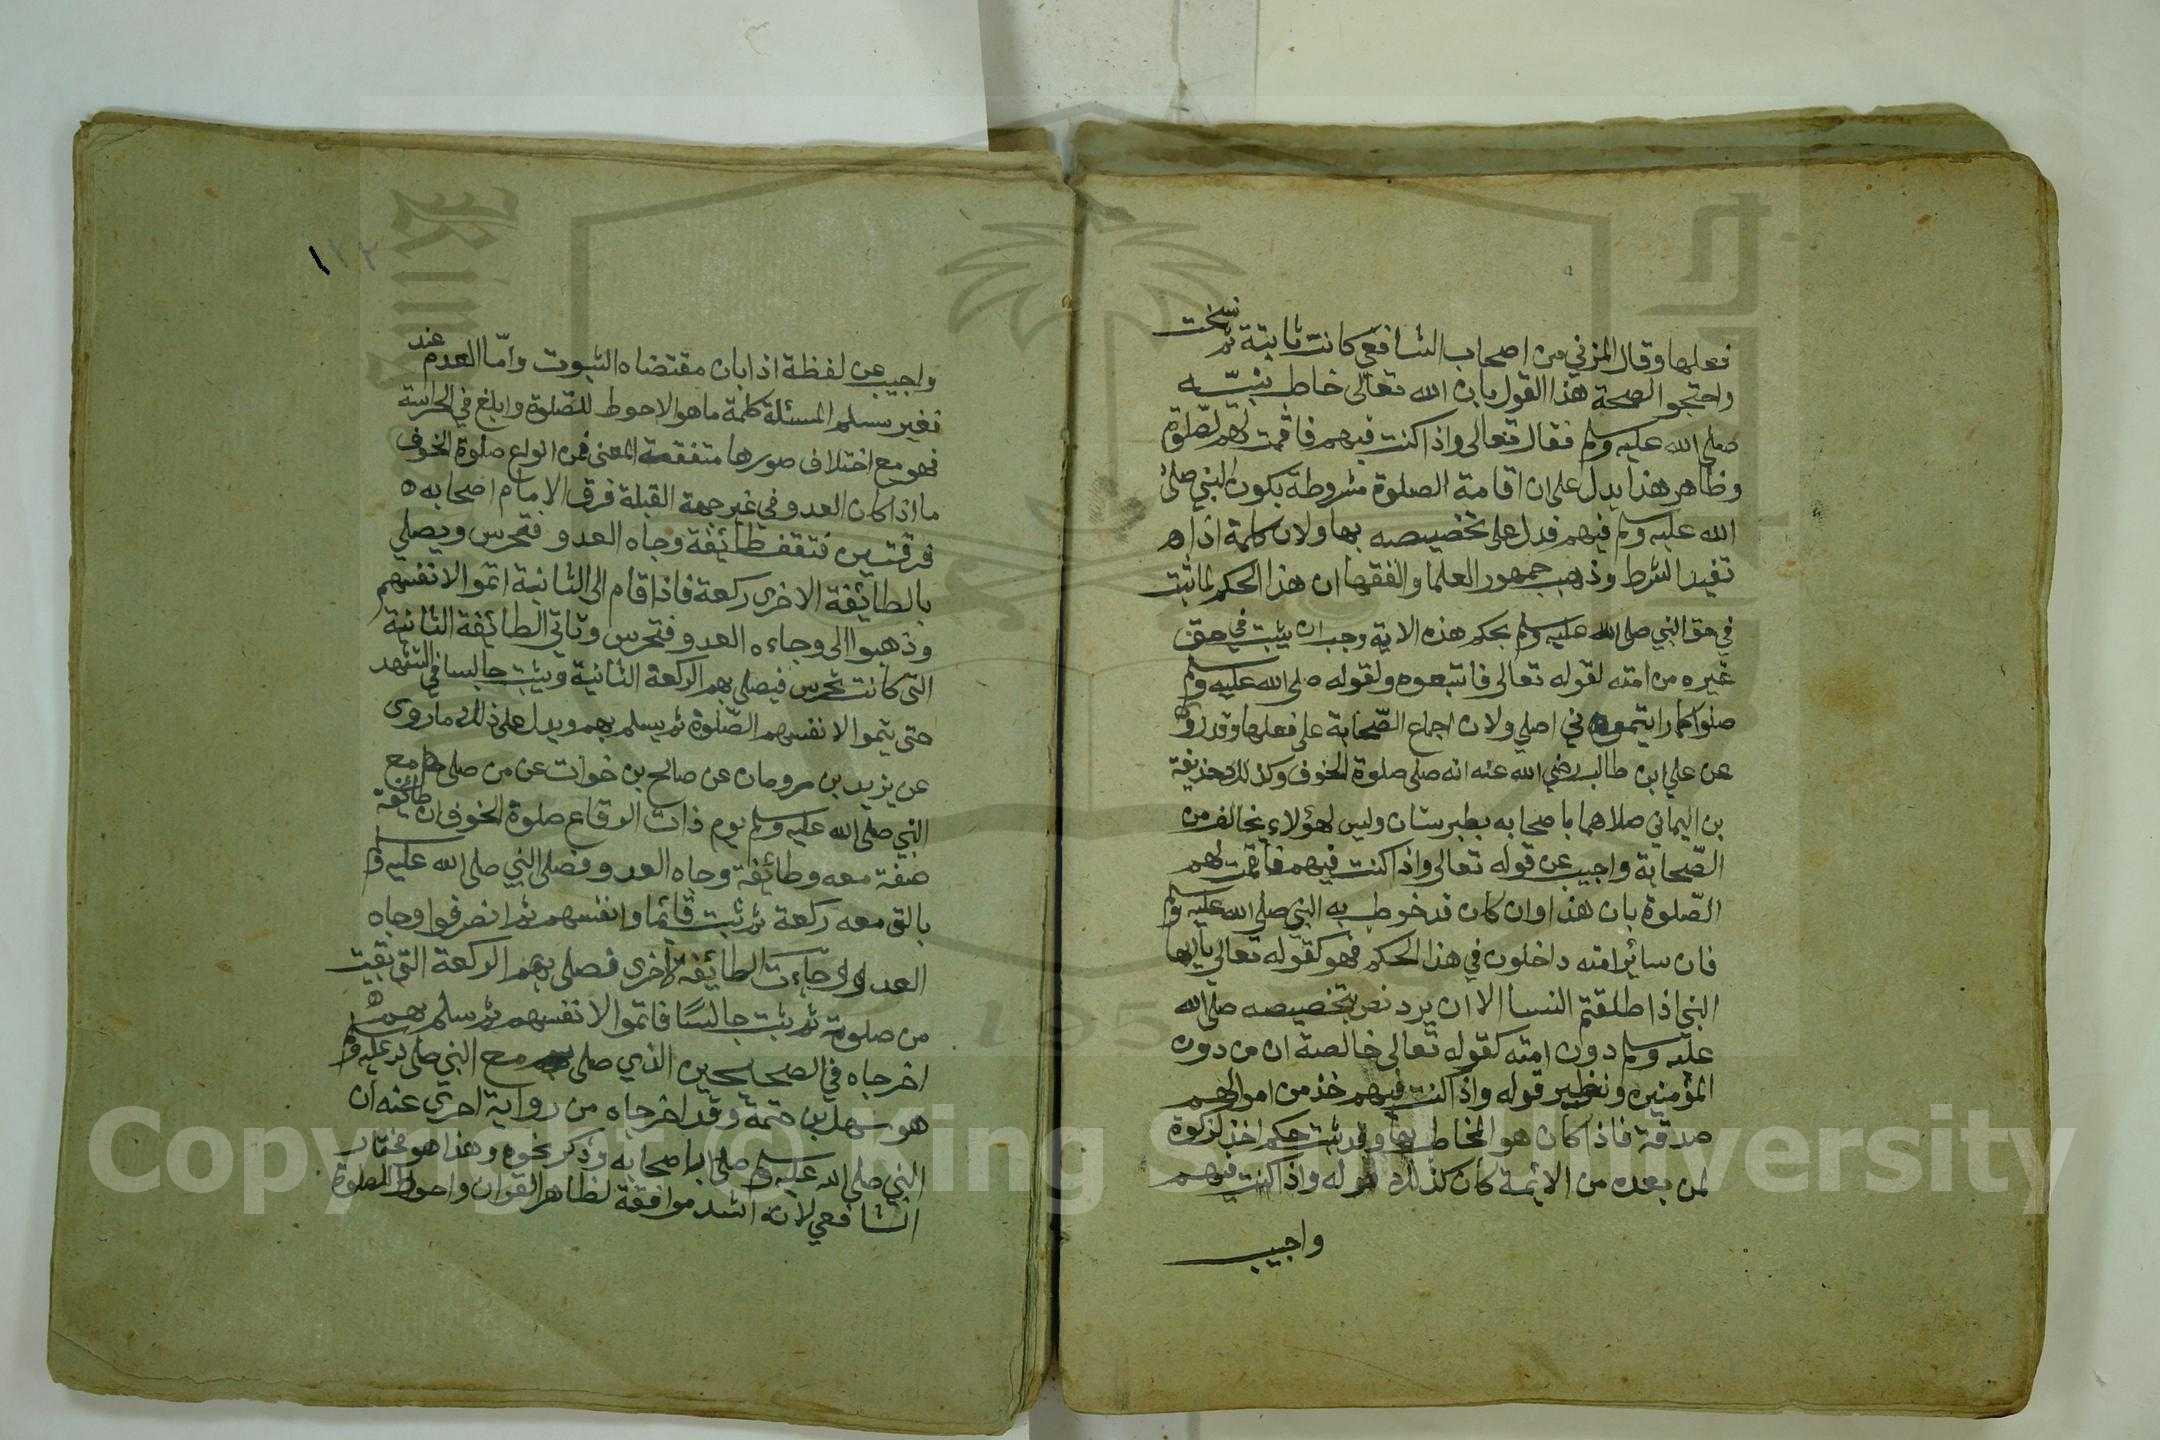 فعلها وقال المزني من اصحاب الشافعي كانت ثابتة ثم نسخت
واحتجوا لصحة هذا القول بان الله تعالى خاطب نبيه
صلى الله عليه وسلم فقال تعالى واذا كنت فيهم فاقمت لهم الصلوة
وظاهر هذا يدل على ان اقامة الصلوة مشروطة بكون النبي صلى
الله عليه وسلم فيهم فدل على تخصيصه بها ولان كلمة اذا
تفيد الشرط وذهب جمهور العلما والفقها ان هذا الحكم لما ثبت
في حق النبي صلى الله عليه وسلم بحكم هذه الاية وجب ان يثبت في حق
غيره من امته لقوله تعالى فاتبعوه ولقوله صلى الله عليه وسلم
صلوا كما رايتموني اصلي ولان اجماع الصحابة على فعلها وقد روي
عن علي ابن طالب رضي الله عنه انه صلى صلوة الخوف وكذلك حذيفة
بن اليماني صلاهما باصحابه بطبرستان وليس لهؤلاء مخالف من
الصحابة واجيب عن قوله تعالى واذا كنت فيهم فاقمت لهم
الصلوة بان هذا وان كان قد خوطب به النبي صلى الله عليه وسلم
فان سائر امته داخلون في هذا الحكم فهو كقوله تعالى يا ايها
النبي اذا طلقتم النسا الا ان يرد نص بتخصيصه صلى الله
عليه وسلم دون امته كقوله تعالى خالصة ان من دون
المؤمنين ونظير قوله واذا كنت فيهم خذ من اموالهم
صدقة فاذا كان هو المخاطب بها وقد ثبت حكم اخذ الزكوة
لمن بعده من الائمة كان كذلك قوله واذا كنت فيهم
واجيب
١٢٢
واجيب عن لفظة اذا بان مقتضاه الثبوت واما العدم عند
تغير سلم المسئلة كلمة ما هو الاحوط للصلوة وابلغ في الحراسة
فهو مع اختلاف صورها متفقة المعنى فمن انواع صلوة الخوف
ما اذا كان العدو في غير جهة القبلة فرق الامام اصحابه
فرقتين فتقف طائفة وجاه العدو فتحرس ويصلي
بالطائفة الاخرى ركعة فاذا قام الى الثانية اتموا لانفسهم
وذهبوا الى وجاه العدو فتحرس وتاتي الطائفة الثانية
التي كانت تحرس فيصلي بهم الركعة الثانية ويثبت جالسا في التشهد
حتى يتموا لانفسهم الصلوة ثم يسلم بهم ويدل على ذلك ما روى
عن يزيد بن رومان عن صالح بن خوات عن من صلى مع
النبي صلى الله عليه وسلم يوم ذات الرقاع صلوة الخوف ان طائفة
صفة معه وطائفة وجاه العدو فصلى النبي صلى الله عليه وسلم
بالتي معه ركعة ثم ثبت قائما وانفسهم ثم انصرفوا وجاه
العدو وجاءت الطائفة الاخرى فصلى بهم الركعة التي بقيت
من صلوته ثم ثبت جالسا فاتموا لانفسهم ثم سلم بهم
اخرجاه في الصحيحين الذي صلى مع النبي صلى الله عليه وسلم
هو سهل بن حتمة وقد اخرجاه من رواية اخرى عنه ان
النبي صلى الله عليه وسلم صلى باصحابه وذكر نحوه وهذا هو مختار
الشافعي لانه اشد موافقة لظاهر القران واحوط للصلوة
Copyright © King Saud University